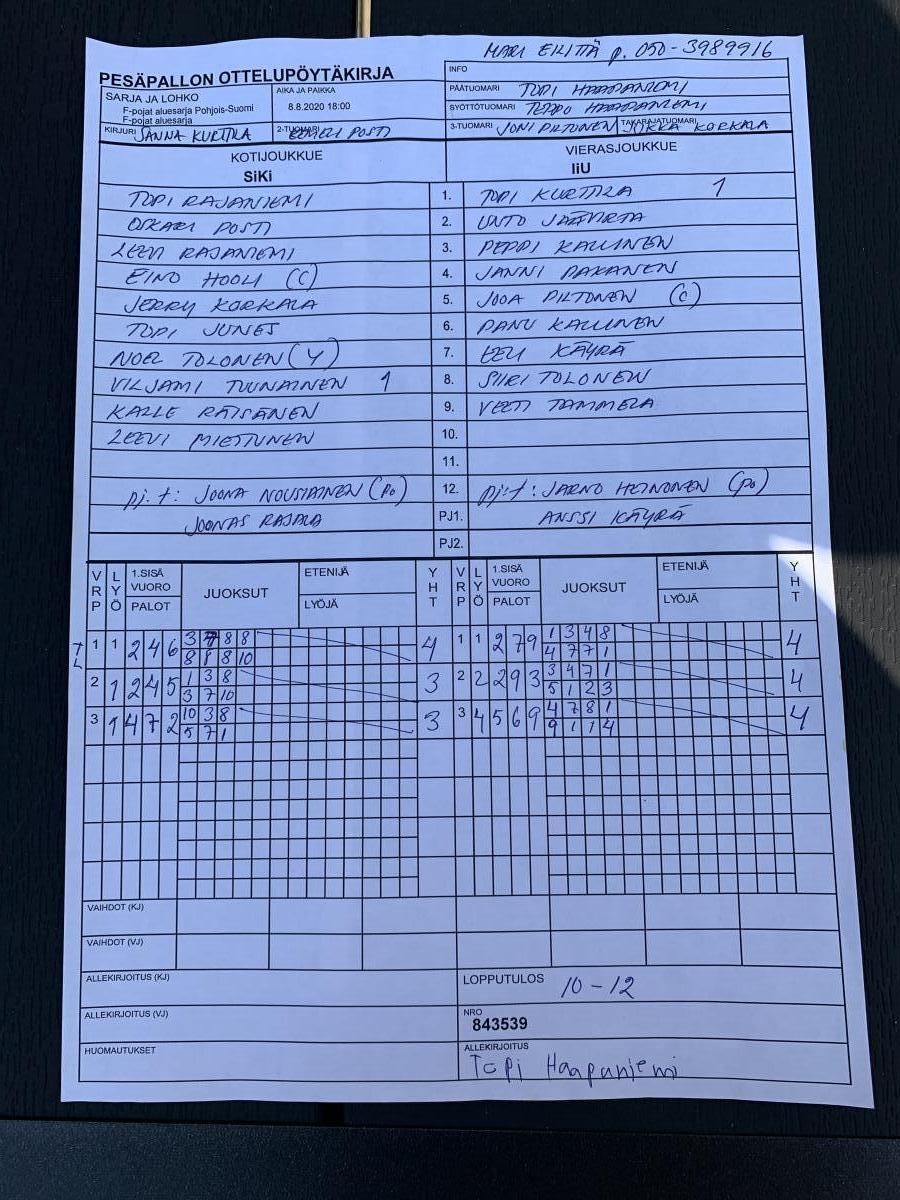 MARI EKITTÄ p. 050-3989916
PESÄPALLON OTTELUPÖYTÄKIRJA
INFO
SARJA JA LOHKO
F-pojat aluesarja Pohjois-Suomi
F-pojat aluesarja
AIKA JA PAIKKA
8.8.2020 18:00
PÄÄTUOMARI TOPI HAAPANIEMI
SYÖTTÖTUOMARI TEPPO HAAPANIEMI
KIRJURI SANNA KURTTILA 2-TUOMARI POSTI 3-TUOMARI JONI PILTONEN TAKARAJATUOMARI JUKKA KORKALA
KOTIJOUKKUE VIERASJOUKKUE
SiKi IiU
TOPI RAJANIEMI 1. TOPI KURTTILA 1
OSKARI POSTI 2. UNTO JÄÄVIRTA
LEEVI RAJANIEMI 3. PEPPI KALLINEN
EINO HOOLI (C) 4. JANNI PAKANEN
JERRY KORKALA 5. JOOA PILTONEN (C)
TOPI JUNES 6. PANU KALLINEN
NOEL TOLONEN (Y) 7. EELI KÄYRÄ
VILJAMI TUUNAINEN 1 8. SIIRI TOLONEN
KALLE RÄISÄNEN 9. VEETI TAMMELA
LEEVI MIETTUNEN 10.
11.
pj.t: JOONA NOUSIAINEN (po) 12. pj.t: JARNO HEINONEN (po)
JOONAS RAJALA PJ1. ANSSI KÄYRÄ
PJ2.
VRP LYÖ 1.SISÄ VUORO PALOT JUOKSUT ETENIJÄ LYÖJÄ YHT VRP LYÖ 1.SISÄ VUORO PALOT JUOKSUT ETENIJÄ LYÖJÄ YHT
1 1 2 4 6 3 7 8 8 4 1 1 2 7 9 1 3 4 8 4
8 8 8 10 4 7 7 1
2 1 2 4 5 1 3 8 3 2 2 2 9 3 3 4 7 1 4
3 7 10 5 1 2 3
3 1 4 7 2 10 3 8 3 3 4 5 6 9 4 7 8 1 4
5 7 1 9 1 1 4
VAIHDOT (KJ)
VAIHDOT (VJ)
ALLEKIRJOITUS (KJ) LOPPUTULOS 10-12
ALLEKIRJOITUS (VJ) NRO
843539
HUOMAUTUKSET ALLEKIRJOITUS
Topi Haapaniemi